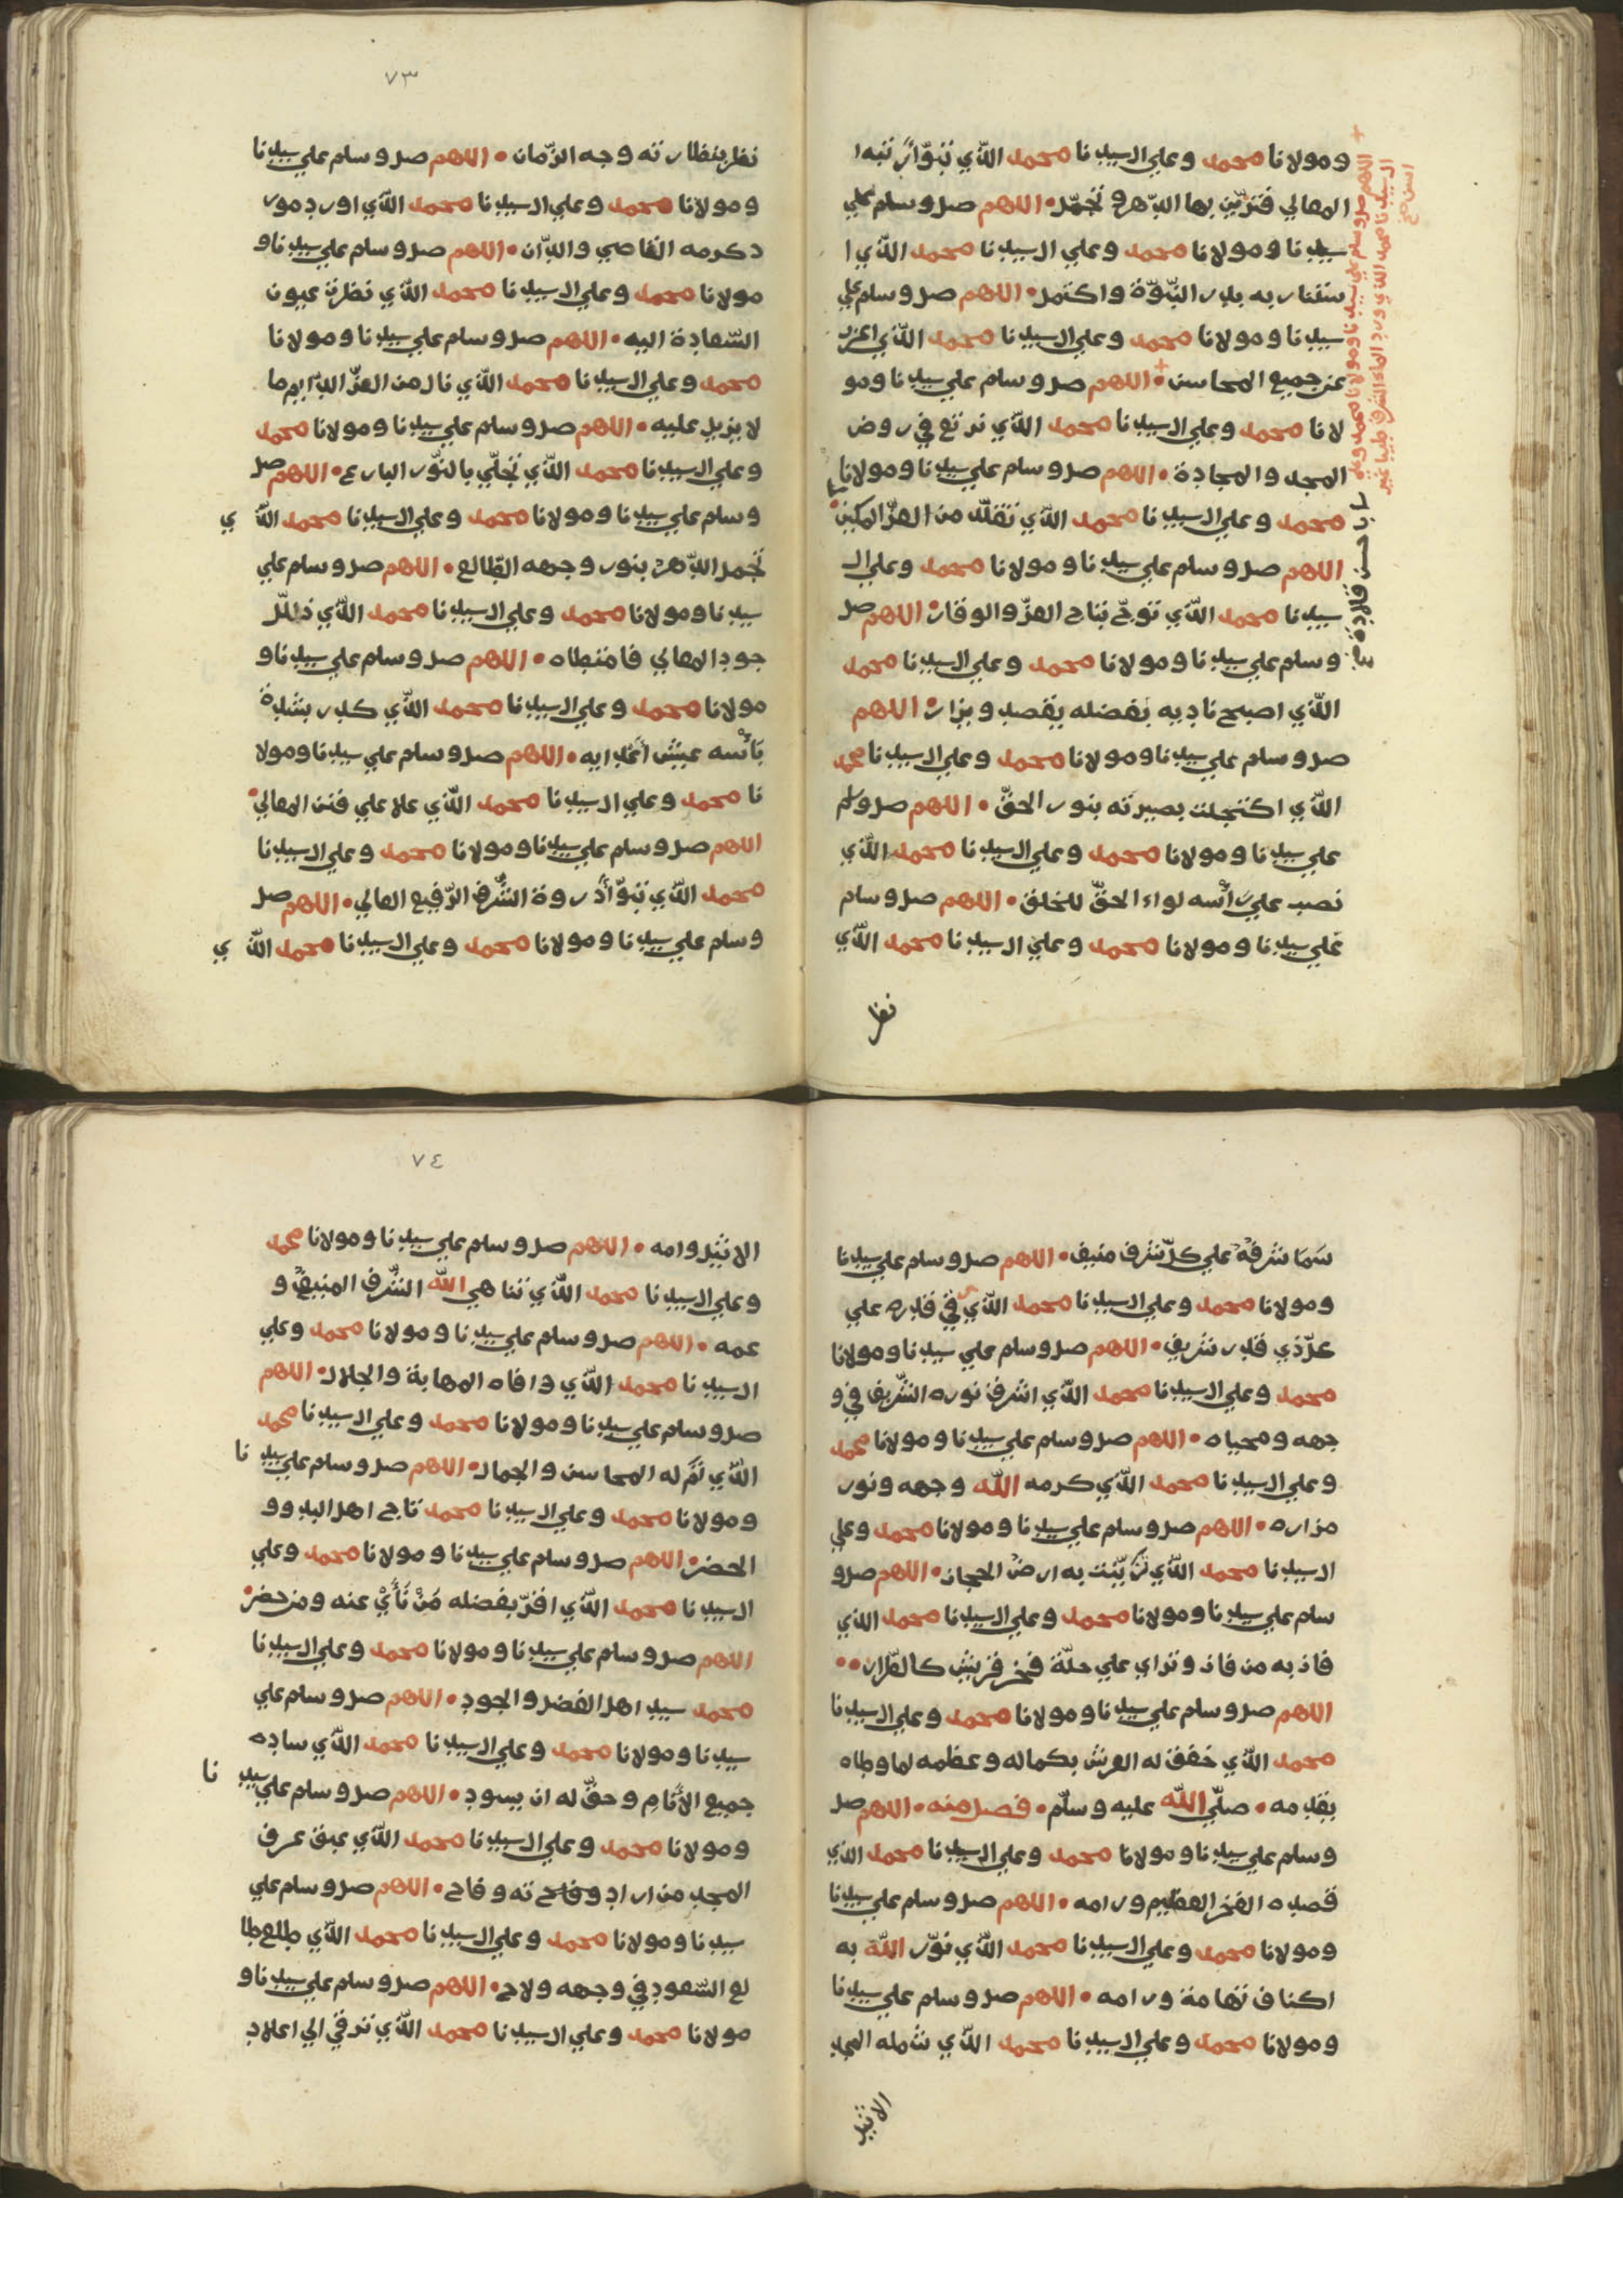 ومولانا محمد وعلي ال سيدنا محمد الذي تبوّا رتبه ا
المعالي فتزيّن بها الدّهر وتجمّل • اللهم صل وسلم علي
سيدنا ومولانا محمد وعلي ال سيدنا محمد الذي ا
ستنار به بدر النّبوّة واكتمل • اللهم صل وسلم علي
سيدنا ومولانا محمد وعلي ال سيدنا محمد الذي اعزب
عن جميع المحاسن • اللهم صل وسلم علي سيدنا ومو
لانا محمد وعلي ال سيدنا محمد الذي نرتع في روض
المجد والمجادة • اللهم صل وسلم علي سيدنا ومولانا
محمد وعلي ال سيدنا محمد الذي تقلّد من العزّ المكين •
اللهم صل وسلم علي سيدنا ومولانا محمد وعلي ال
سيدنا محمد الذي توجّ بتاج العزّ والوقار • اللهم صل
وسلم علي سيدنا ومولانا محمد وعلي ال سيدنا محمد
الذي اصبح ناديه بفضله يقصد ويزار • اللهم
صل وسلم علي سيدنا ومولانا محمد وعلي ال سيدنا محمد
الذي اكتحلت بصيرته بنور الحقّ • اللهم صل وسلم
علي سيدنا ومولانا محمد وعلي ال سيدنا محمد الذي
نصب علي رأسه لواء الحقّ للخلق • اللهم صل وسلم
علي سيدنا ومولانا محمد وعلي ال سيدنا محمد الذي
نظر
اللهم صل وسلم علي سيدنا ومولانا محمد وعلي
ال سيدنا محمد الذي ورد الماء
حسن قلادة
٧٣
نظر بنظارته وجه الزّمان • اللهم صل وسلم علي سيدنا
ومولانا محمد وعلي ال سيدنا محمد الذي اورد مور
د كرمه القاصي والدّان • اللهم صل وسلم علي سيدنا و
مولانا محمد وعلي ال سيدنا محمد الذي نظرت عيون
السّعادة اليه • اللهم صل وسلم علي سيدنا ومولانا
محمد وعلي ال سيدنا محمد الذي نال من العزّ الدّايم ما
لا يزيل عليه • اللهم صل وسلم علي سيدنا ومولانا محمد
وعلي ال سيدنا محمد الذي تجلّي بالنّور البارع • اللهم صل
وسلم علي سيدنا ومولانا محمد وعلي ال سيدنا محمد الذي
تجمل الدّهر بنور وجهه الطّالع • اللهم صل وسلم علي
سيدنا ومولانا محمد وعلي ال سيدنا محمد الذي ذلّل
جود المعالي فامتطاه • اللهم صل وسلم علي سيدنا و
مولانا محمد وعلي ال سيدنا محمد الذي كدر بشدة
بأسه عيش أعدايه • اللهم صل وسلم علي سيدنا ومولا
نا محمد وعلي ال سيدنا محمد الذي علا علي فنن المعالي •
اللهم صل وسلم علي سيدنا ومولانا محمد وعلي ال سيدنا
محمد الذي تبوّأ ذروة الشّرف الرّفيع العالي • اللهم صل
وسلم علي سيدنا ومولانا محمد وعلي ال سيدنا محمد الذي
سَمَا شرفُهُ علي كلّ شرف منيف • اللهم صل وسلم علي سيدنا
ومولانا محمد وعلي ال سيدنا محمد الذي رقي قدره علي
علّ ذي قدر شريف • اللهم صل وسلم علي سيدنا ومولانا
محمد وعلي ال سيدنا محمد الذي اشرق نوره الشّريف في و
جهه ومحياه • اللهم صل وسلم علي سيدنا ومولانا محمد
وعلي ال سيدنا محمد الذي كرمه الله وجهه ونور
مزاره • اللهم صل وسلم علي سيدنا ومولانا محمد وعلي
ال سيدنا محمد الذي تزيّنت به ارض الحجاز • اللهم صل و
سلم علي سيدنا ومولانا محمد وعلي ال سيدنا محمد الذي
فاز به من فاز وتراي علي حلّة فخر قريش كالطّراز ••
اللهم صل وسلم علي سيدنا ومولانا محمد وعلي ال سيدنا
محمد الذي خفق له العرش بكماله وعظمه لما وطاه
بقدمه • صلّي الله عليه وسلّم • فصل منه • اللهم صل
وسلم علي سيدنا ومولانا محمد وعلي ال سيدنا محمد الذي
قصده الفخر العظيم ورامه • اللهم صل وسلم علي سيدنا
ومولانا محمد وعلي ال سيدنا محمد الذي نوّر الله به
اكناف تهامة ورامه • اللهم صل وسلم علي سيدنا
ومولانا محمد وعلي ال سيدنا محمد الذي شمله المجد
الاثيل
٧٤
الاثيل وامه • اللهم صل وسلم علي سيدنا ومولانا محمد
وعلي ال سيدنا محمد الذي تناهي الله الشّرف المنيف و
عمه • اللهم صل وسلم علي سيدنا ومولانا محمد وعلي
ال سيدنا محمد الذي وافاه المهابة والجلال • اللهم
صل وسلم علي سيدنا ومولانا محمد وعلي ال سيدنا محمد
الذي تمّ له المحاسن والجمال • اللهم صل وسلم علي سيدنا
ومولانا محمد وعلي ال سيدنا محمد تاج اهل البدو و
الحضر • اللهم صل وسلم علي سيدنا ومولانا محمد وعلي
ال سيدنا محمد الذي اقرّ بفضله مَنْ نَأَيْ عنه ومن حضر •
اللهم صل وسلم علي سيدنا ومولانا محمد وعلي ال سيدنا
محمد سيد اهل الفضل والجود • اللهم صل وسلم علي
سيدنا ومولانا محمد وعلي ال سيدنا محمد الذي ساده
جميع الأنامِ وحقّ له ان يسود • اللهم صل وسلم علي سيدنا
ومولانا محمد وعلي ال سيدنا محمد الذي عبق عرف
المجد من اراد وفاح ته وفاح • اللهم صل وسلم علي
سيدنا ومولانا محمد وعلي ال سيدنا محمد الذي طلع طا
لع السّعود في وجهه ولاح • اللهم صل وسلم علي سيدنا و
مولانا محمد وعلي ال سيدنا محمد الذي ترقي الي اعلا د